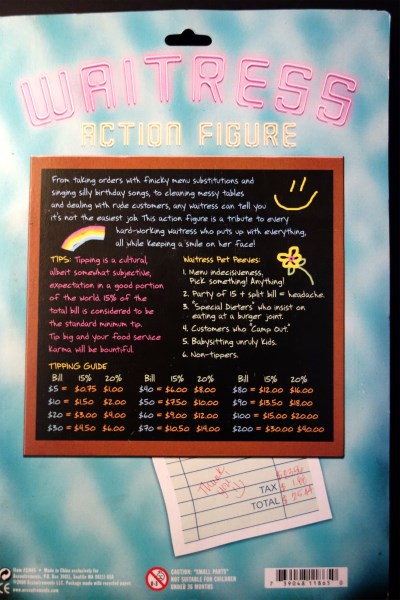 WAITRESS
ACTION FIGURE
From taking orders with finicky menu substitutions and
singing silly birthday songs, to cleaning messy tables
and dealing with rude customers, any waitress can tell you
it's not the easiest job. This action figure is a tribute to every
hard-working waitress who puts up with everything,
all while keeping a smile on her face!
TIPS: Tipping is a cultural,
albeit somewhat subjective,
expectation in a good portion
of the world. 15% of the
total bill is considered to be
the standard minimum tip.
Tip big and your food service
karma will be bountiful.
Waitress Pet Peeves:
1. Menu indecisiveness,
Pick something! Anything!
2. Party of 15 + split bill = headache.
3. "Special Dieters" who insist on
eating at a burger joint.
4. Customers who "Camp Out."
5. Babysitting unruly kids.
6. Non-tippers.
TIPPING GUIDE
Bill 15% 20% Bill 15% 20% Bill 15% 20%
$5 = $0.75 $1.00 $40 = $6.00 $8.00 $80 = $12.00 $16.00
$10 = $1.50 $2.00 $50 = $7.50 $10.00 $90 = $13.50 $18.00
$20 = $3.00 $4.00 $60 = $9.00 $12.00 $100 = $15.00 $20.00
$30 = $4.50 $6.00 $70 = $10.50 $14.00 $200 = $30.00 $40.00
Thank
you
TAX
TOTAL
Made in China exclusively for
Accoutrements, P.O. Box 30811, Seattle WA 98113 USA
Package made with recycled paper.
www.accoutrements.com
CAUTION: "SMALL PARTS"
NOT SUITABLE FOR CHILDREN
UNDER 36 MONTHS
0-3
CE
7 39048 11865 0